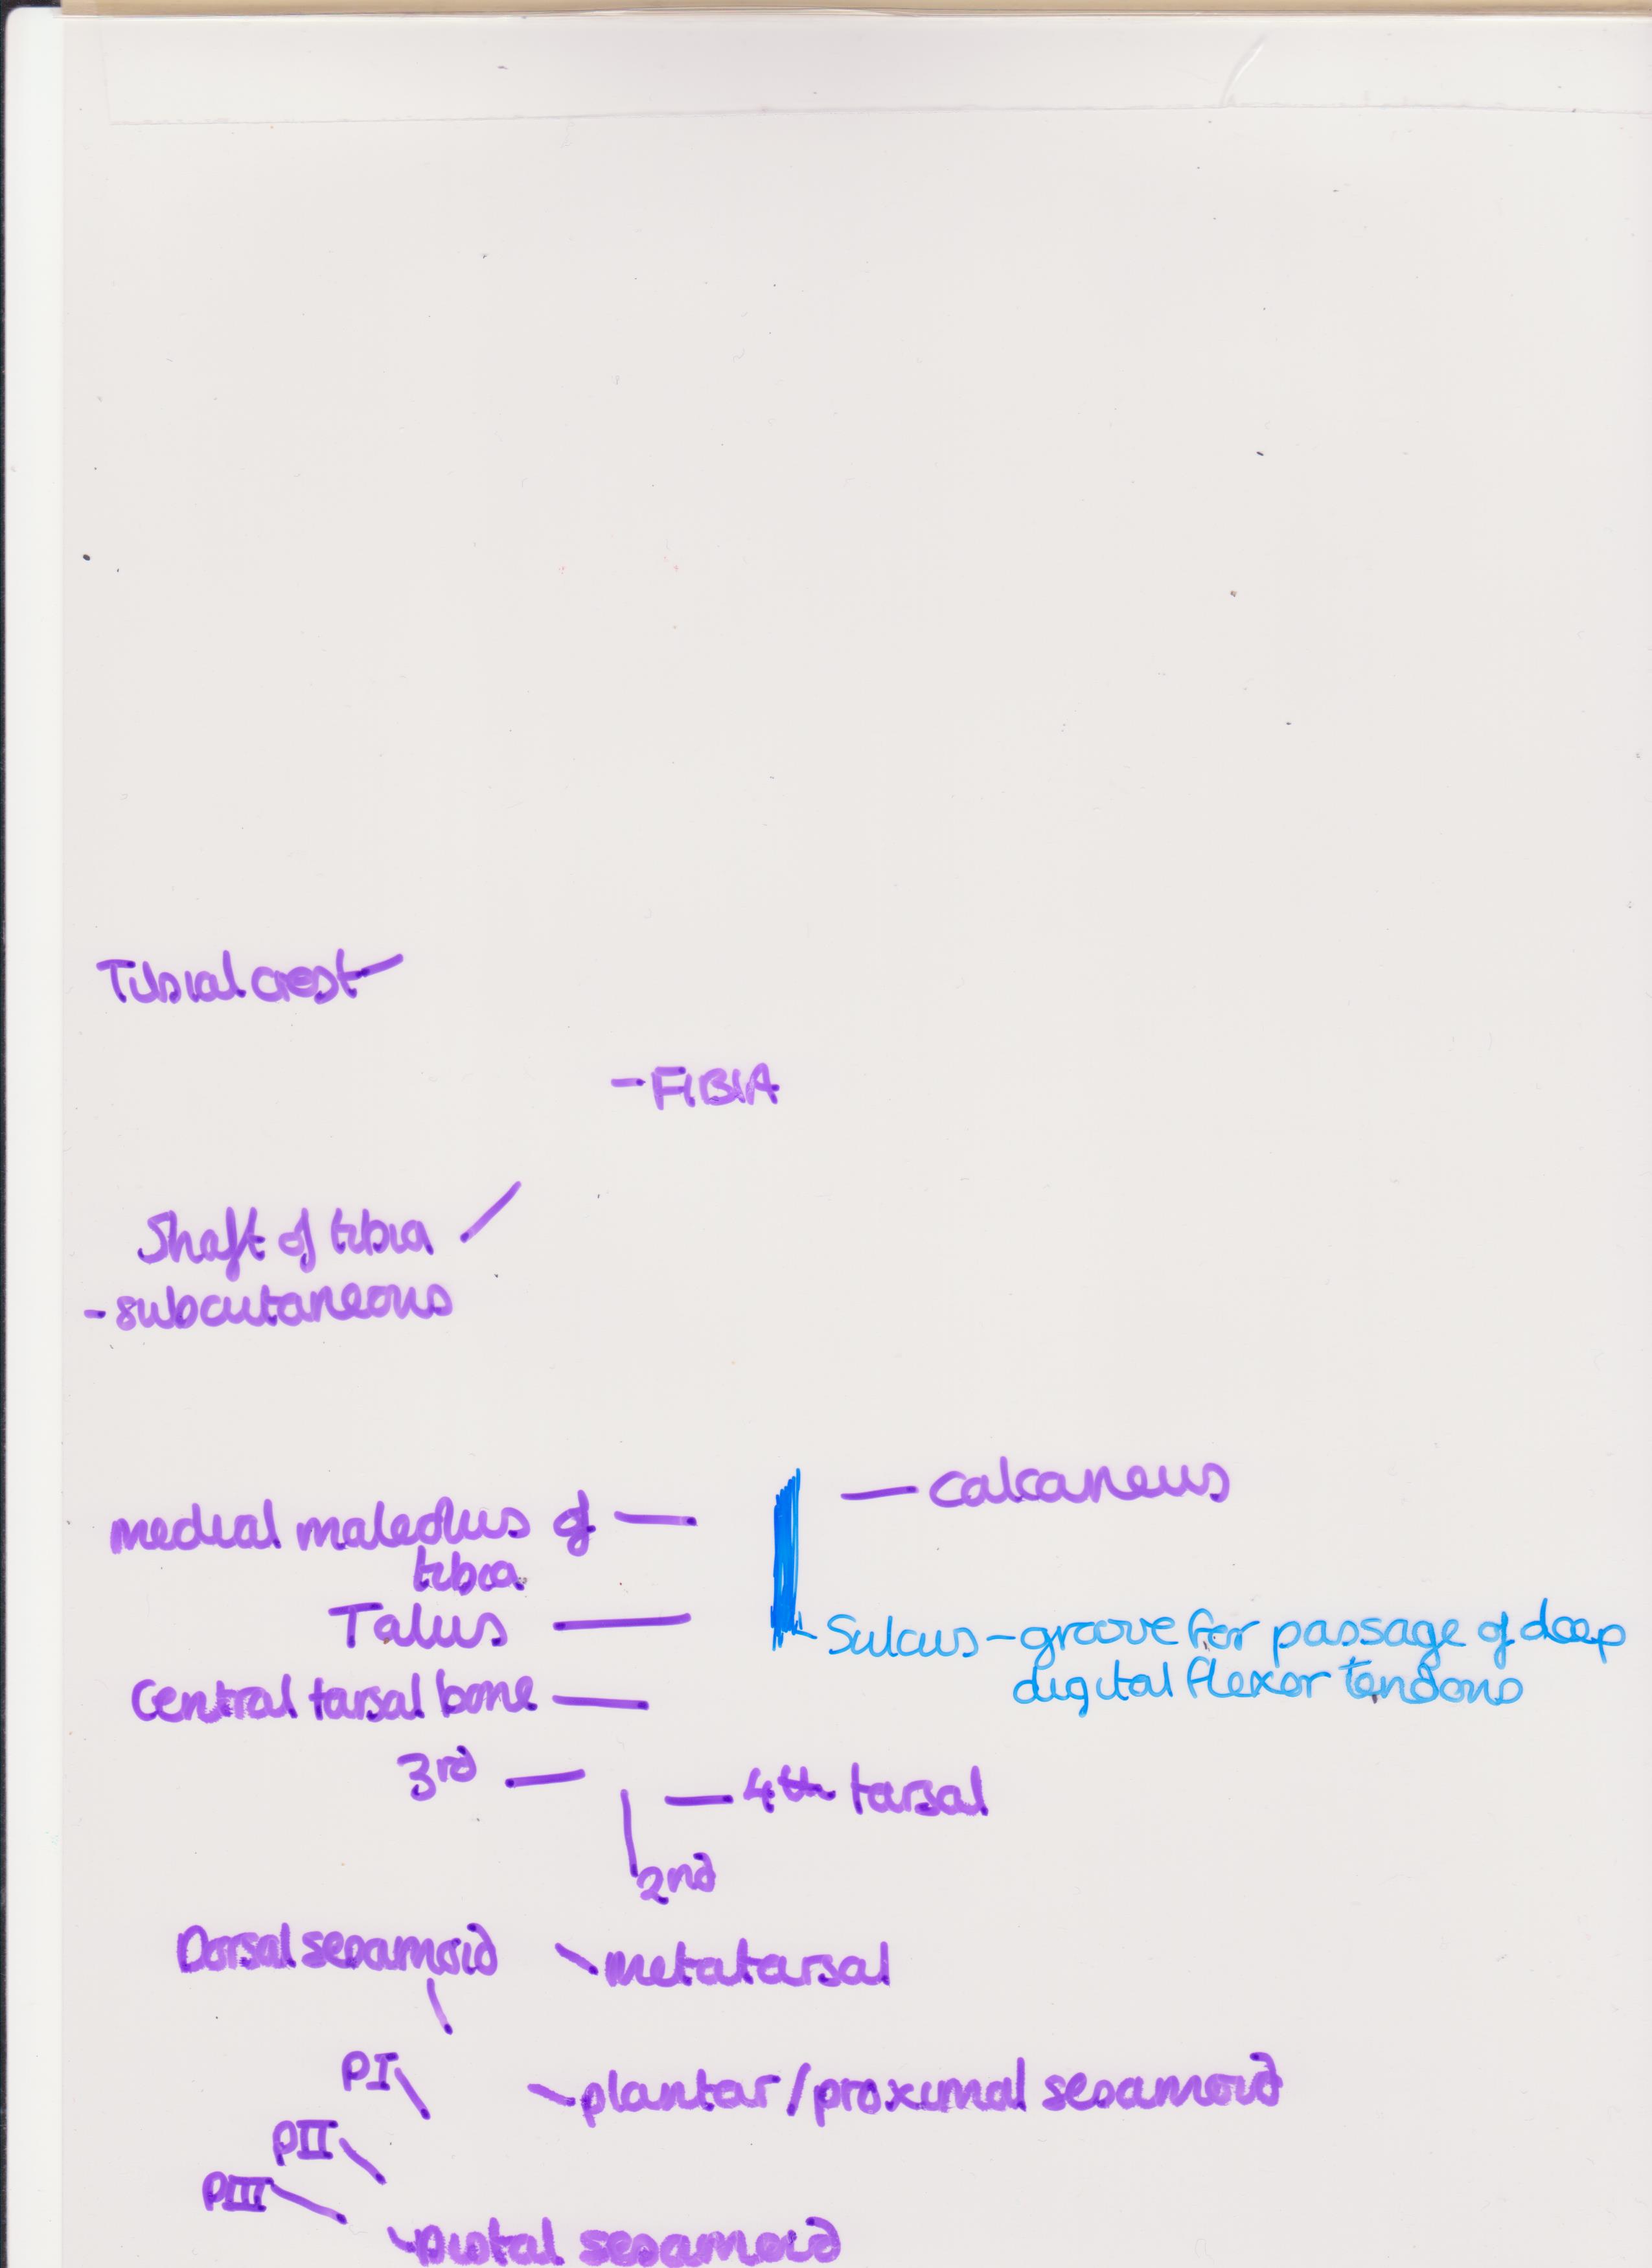 Tibial crest
- FIBIA
Shaft of tibia
- subcutaneous
calcaneus
medial maleolus of
tibia
Talus
Sulcus - groove for passage of deep
digital flexor tendons
Central tarsal bone
3rd
4th tarsal
2nd
Dorsal sesamoid
metatarsal
PI
plantar/proximal sesamoid
PII
PIII
Distal sesamoid